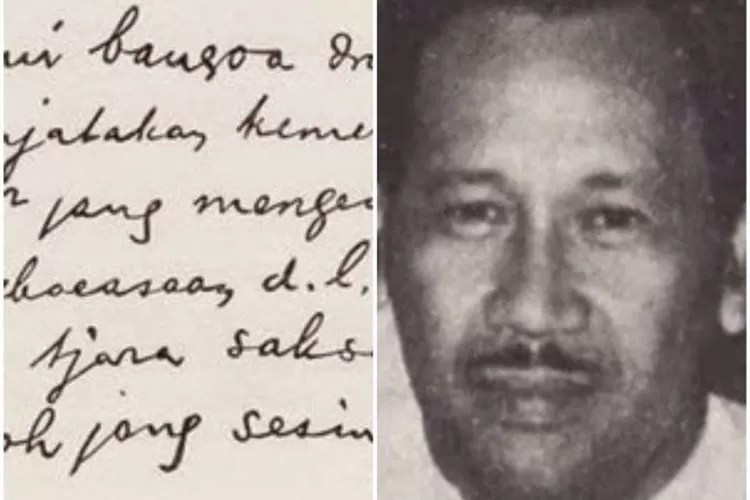 mi bangsa In
jatakan keme
jang menge
koeasaan d.l.
tjara saks
oh jang sesin